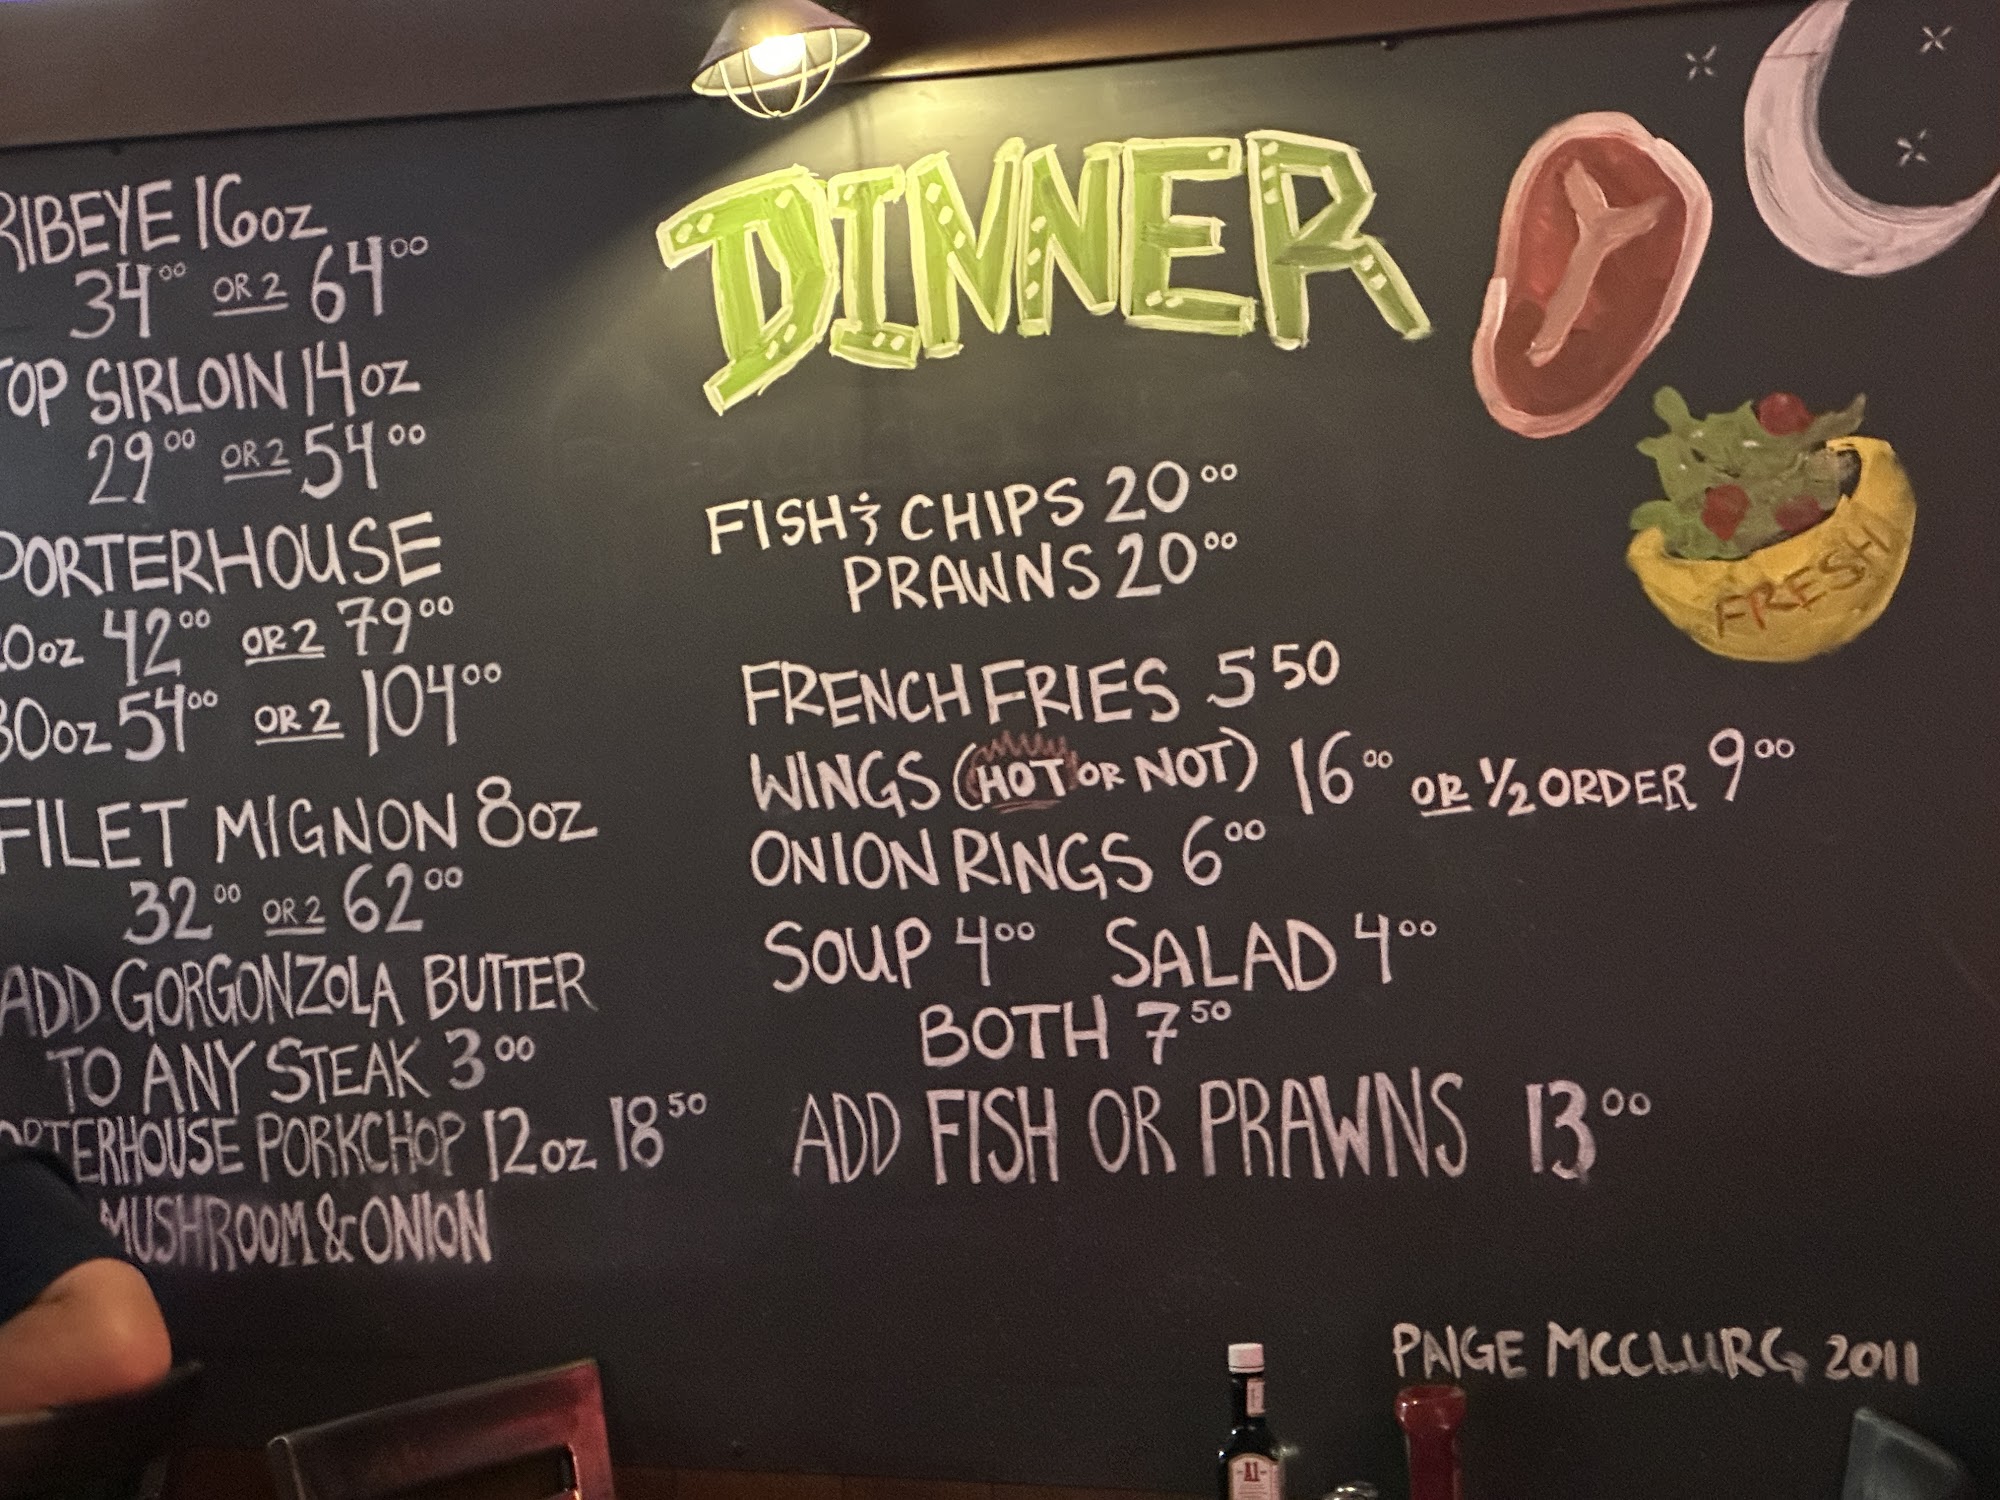 RIBEYE 16oz
34⁰⁰ OR 2 64⁰⁰
TOP SIRLOIN 14oz
29⁰⁰ OR 2 54⁰⁰
PORTERHOUSE
20oz 42⁰⁰ OR 2 79⁰⁰
30oz 54⁰⁰ OR 2 104⁰⁰
FILET MIGNON 8oz
32⁰⁰ OR 2 62⁰⁰
ADD GORGONZOLA BUTTER
TO ANY STEAK 3⁰⁰
PORTERHOUSE PORKCHOP 12oz 18⁵⁰
MUSHROOM & ONION
DINNER
FISH & CHIPS 20⁰⁰
PRAWNS 20⁰⁰
FRENCH FRIES 5⁵⁰
WINGS (HOT OR NOT) 16⁰⁰ OR 1/2 ORDER 9⁰⁰
ONION RINGS 6⁰⁰
SOUP 4⁰⁰ SALAD 4⁰⁰
BOTH 7⁵⁰
ADD FISH OR PRAWNS 13⁰⁰
FRESH
PAIGE MCCLURG 2011
A1